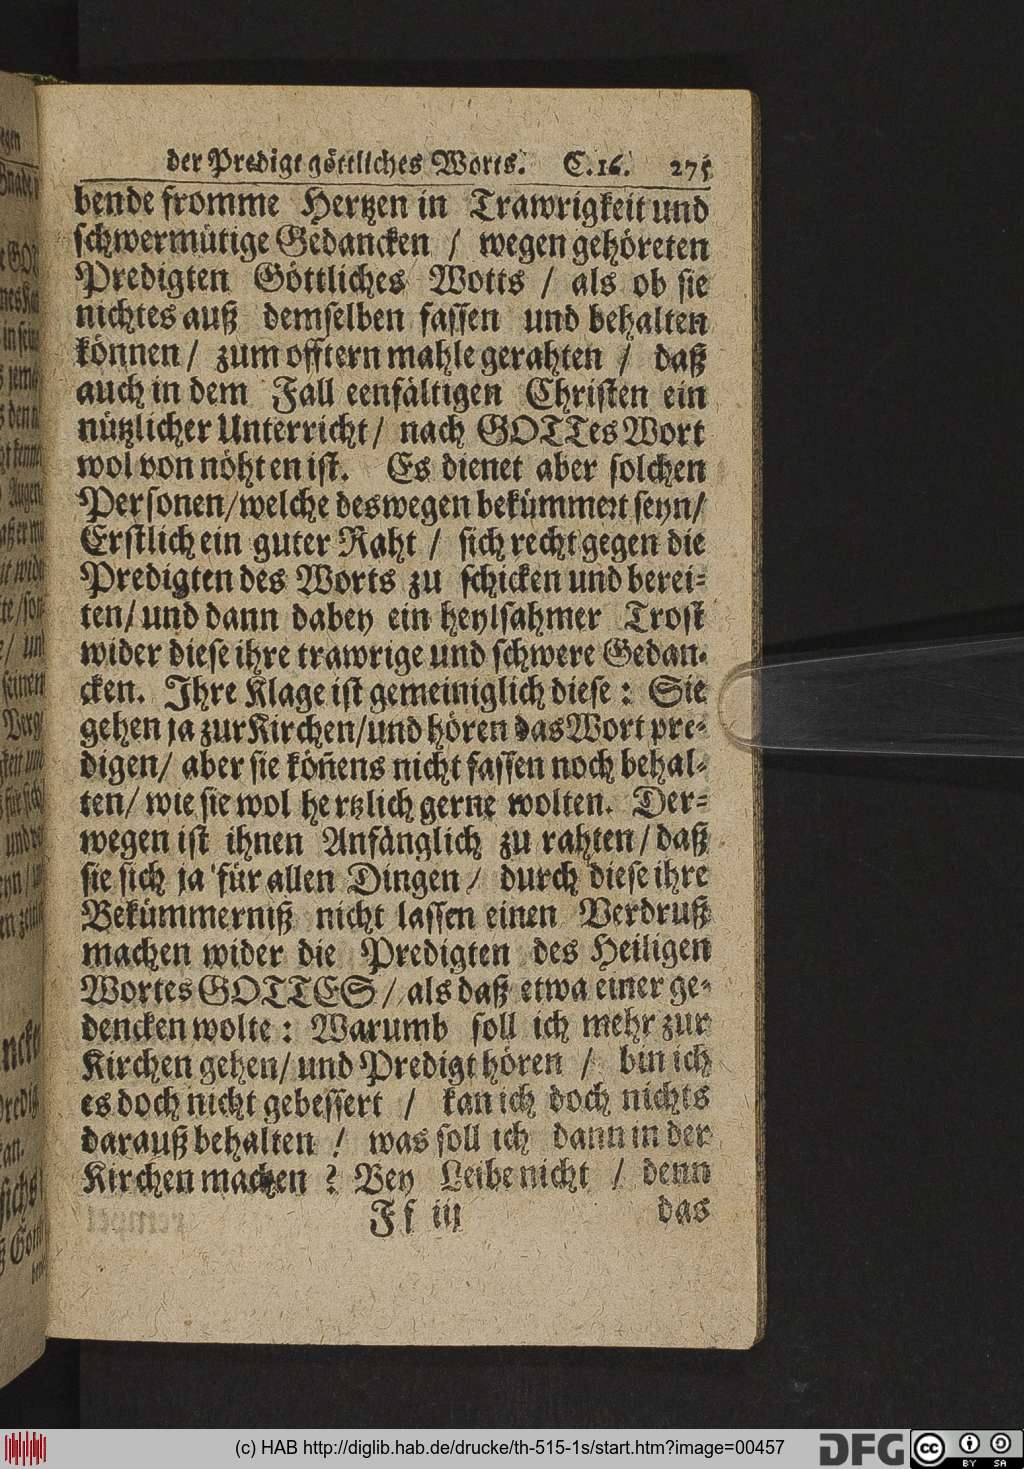 der Predigt göttliches Worts. C. 16. 275
bende fromme Hertzen in Trawrigkeit und
schwermütige Gedancken / wegen gehöreten
Predigten Göttliches Wotts / als ob sie
nichtes auß demselben fassen und behalten
können / zum offtern mahle gerahten / daß
auch in dem Fall eenfältigen Christen ein
nützlicher Unterricht / nach GOTTes Wort
wol von nöhten ist. Es dienet aber solchen
Personen / welche deswegen bekümmert seyn /
Erstlich ein guter Raht / sich recht gegen die
Predigten des Worts zu schicken und berei-
ten / und dann dabey ein heylsahmer Trost
wider diese ihre trawrige und schwere Gedan-
cken. Ihre Klage ist gemeiniglich diese : Sie
gehen ja zur Kirchen / und hören das Wort pre-
digen / aber sie köñens nicht fassen noch behal-
ten / wie sie wol hertzlich gerne wolten. Der-
wegen ist ihnen Anfänglich zu rahten / daß
sie sich ja für allen Dingen / durch diese ihre
Bekümmerniß nicht lassen einen Verdruß
machen wider die Predigten des Heiligen
Wortes GOTTES / als daß etwa einer ge-
dencken wolte : Warumb soll ich mehr zur
Kirchen gehen / und Predigt hören / bin ich
es doch nicht gebessert / kan ich doch nichts
darauß behalten / was soll ich dann in der
Kirchen machen ? Bey Leibe nicht / denn
Ff iij das
(c) HAB http://diglib.hab.de/drucke/th-515-1s/start.htm?image=00457
DFG
cc BY SA